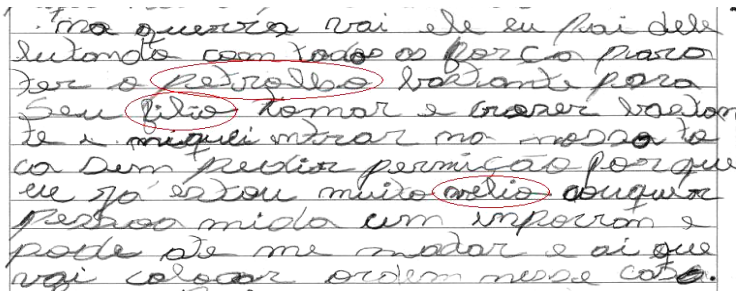 na guerra vai ele eu pai dele
lutando com todos as força para
ter o petrolho bastante para
seu filio tomar e craser bastan
te e miquei intrar na nossa to
ca sem pedir permição porque
eu ja estou muito velio couquer
pessoa mida um inporran e
pode ate me matar e ai que
vai colocar ordem nesse caso.